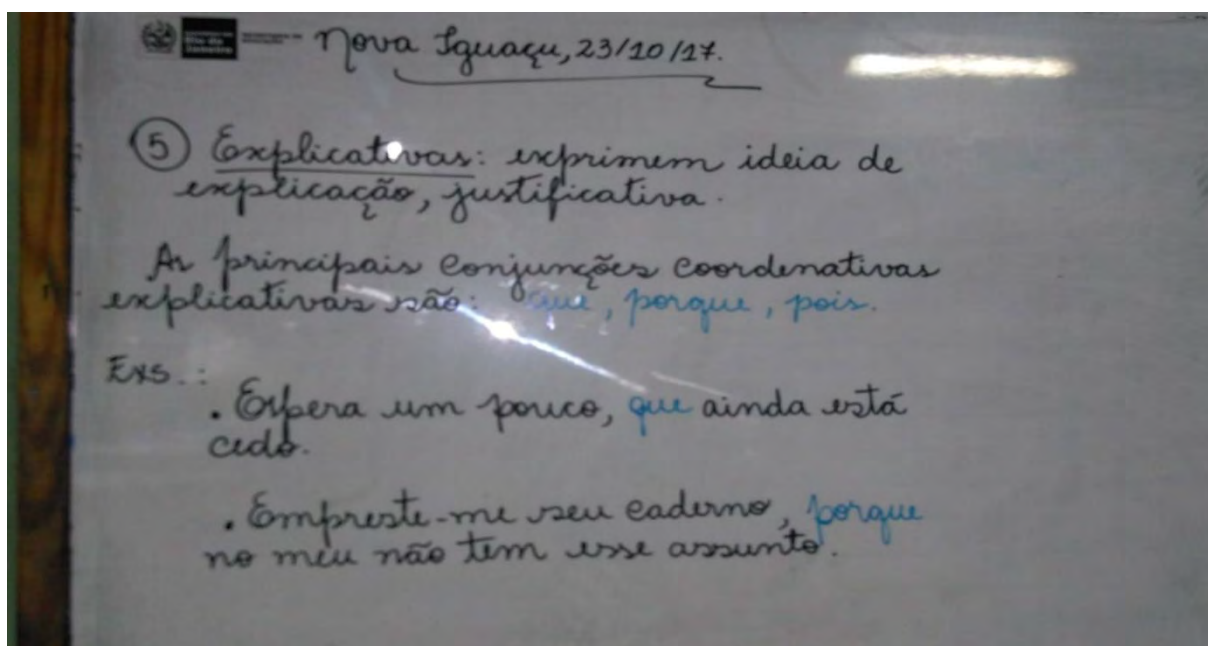 Rio de Janeiro
Nova Iguaçu, 23/10/17.
5 Explicativas: exprimem ideia de
explicação, justificativa.
As principais conjunções coordenativas
explicativas são: que, porque, pois.
Exs.:
. Espera um pouco, que ainda está
cedo.
. Empreste-me seu caderno, porque
no meu não tem esse assunto.